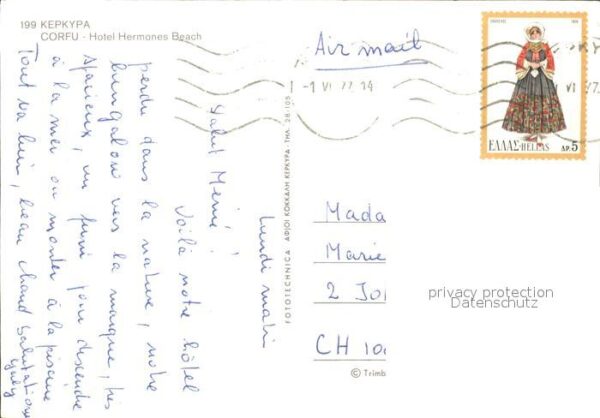 199 ΚΕΡΚΥΡΑ
CORFU - Hotel Hermones Beach
Air mail
-1 VI 77 14
VI 77
ΕΛΛΑΣ-HELLAS ΔΡ. 5
Lundi matin
Salut Mémé !
Voilà notre hôtel
perdu dans la nature, notre
bungalow vers la marque, très
spacieux, un funi pour descendre
à la mer ou monter à la piscine
Tout va bien, beau chaud Salutations
FOTOTECHNICA ΑΦΙΟΙ ΚΟΚΚΑΛΗ ΚΕΡΚΥΡΑ - ΤΗΛ. 28-105
Mada
Marie
2
CH 100
© Trimb
privacy protection
Datenschutz